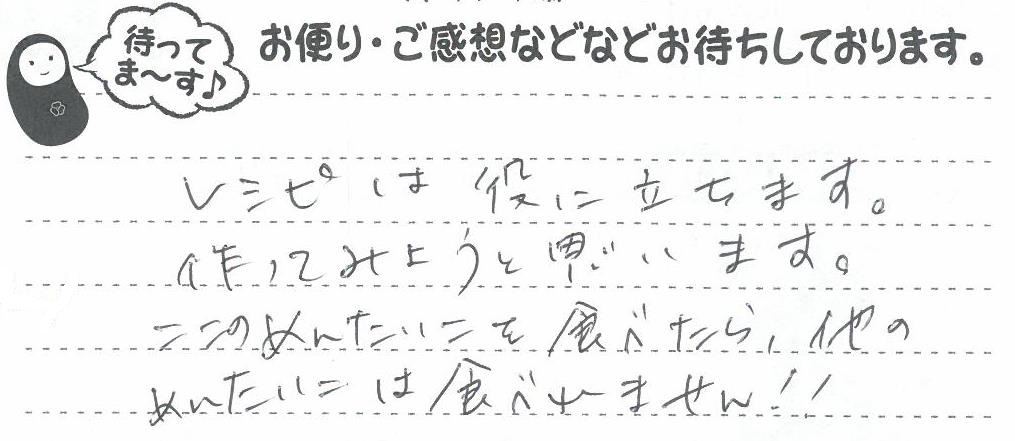 待って
ま〜す♪
お便り・ご感想などなどお待ちしております。
レシピは役に立ちます。
作ってみようと思います。
ここのめんたいこを食べたら、他の
めんたいこは食べれません!!